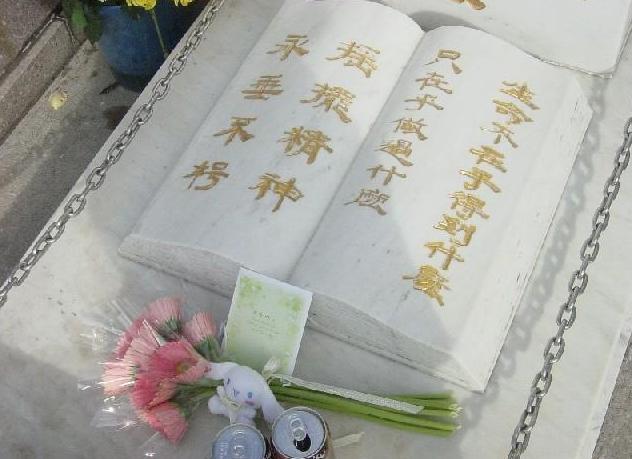 生命不在乎得到什麼
只在乎做過什麼
搖擺精神
永垂不朽